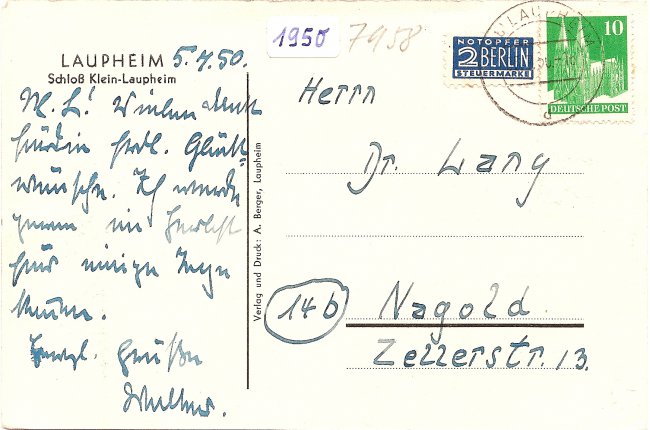 1950 7958
LAUPHEIM 5.4.50.
Schloß Klein-Laupheim
M. L.! Vielen Dank
für die frdl. Glück-
wünsche. Ich werde
gerne im Herbst
für einige Tage
kommen.
Herzl. Grüße
Walter.
Verlag und Druck: A. Berger, Laupheim
NOTOPFER
2 BERLIN
STEUERMARKE
LAUPHEIM
10
DEUTSCHE POST
Herrn
Dr. Lang
14b Nagold
Zellerstr. 13.